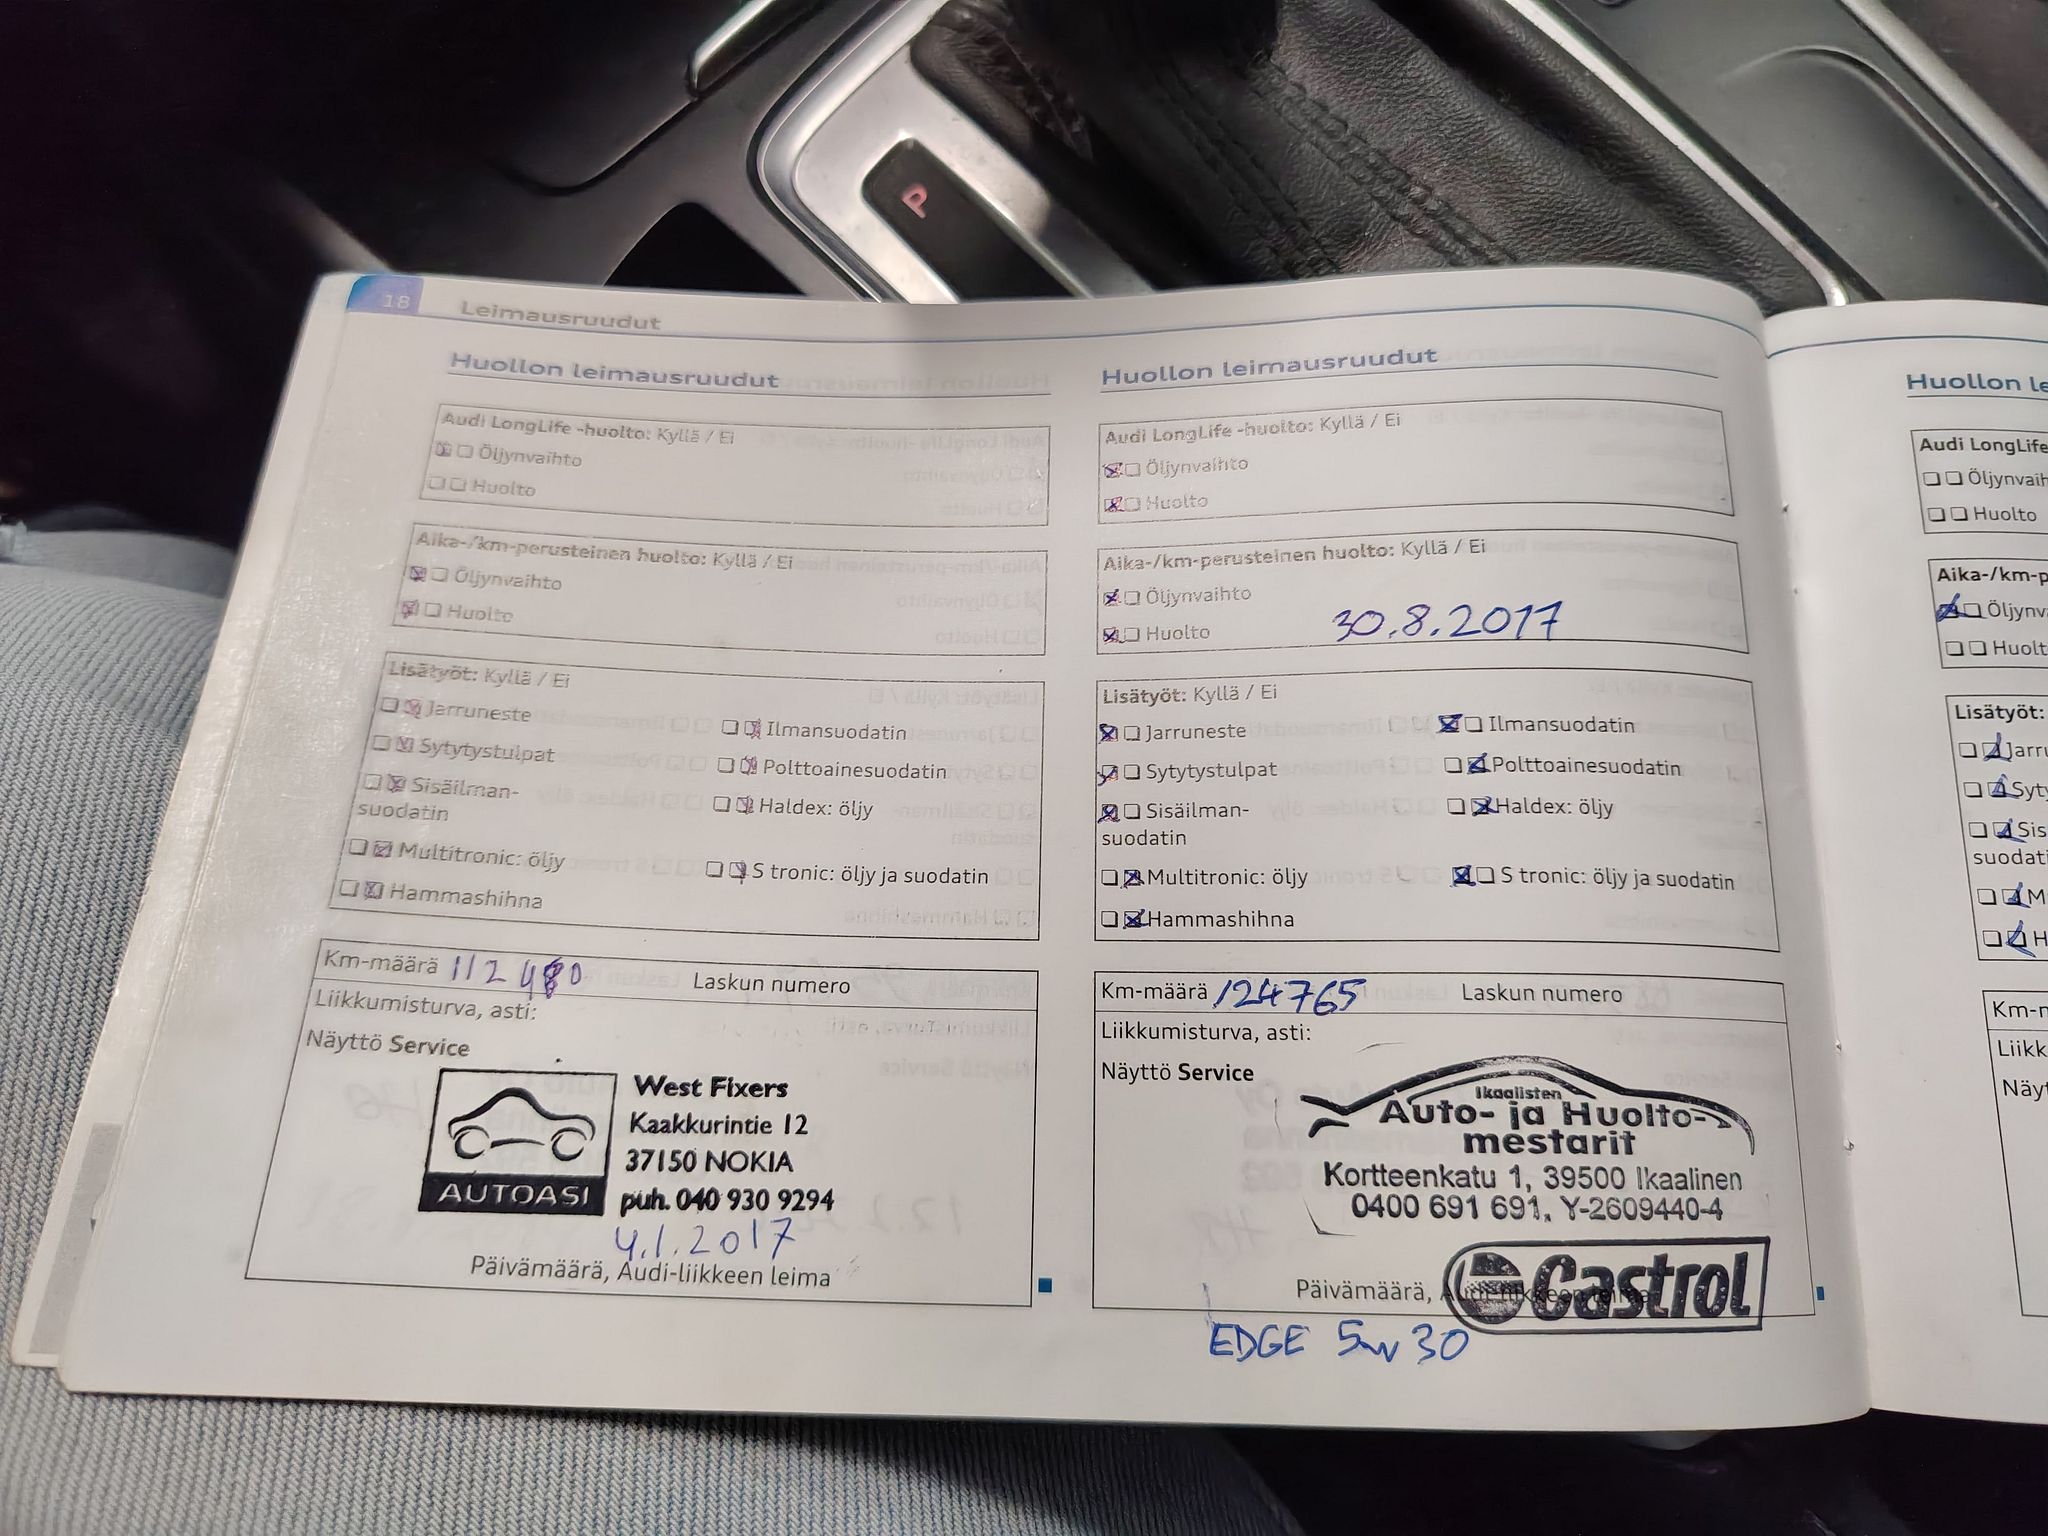 P
18 Leimausruudut
Huollon leimausruudut
Audi LongLife -huolto: Kyllä / Ei
Öljynvaihto
Huolto
Aika-/km-perusteinen huolto: Kyllä / Ei
Öljynvaihto
Huolto
Lisätyöt: Kyllä / Ei
Jarruneste
Ilmansuodatin
Sytytystulpat
Polttoainesuodatin
Sisäilman-
suodatin
Haldex: öljy
Multitronic: öljy
S tronic: öljy ja suodatin
Hammashihna
Km-määrä 112 480 Laskun numero
Liikkumisturva, asti:
Näyttö Service
West Fixers
Kaakkurintie 12
37150 NOKIA
AUTOASI
puh. 040 930 9294
4.1.2017
Päivämäärä, Audi-liikkeen leima
Huollon leimausruudut
Audi LongLife -huolto: Kyllä / Ei
Öljynvaihto
Huolto
Aika-/km-perusteinen huolto: Kyllä / Ei
Öljynvaihto
Huolto 30.8.2017
Lisätyöt: Kyllä / Ei
Jarruneste
Ilmansuodatin
Sytytystulpat
Polttoainesuodatin
Sisäilman-
suodatin
Haldex: öljy
Multitronic: öljy
S tronic: öljy ja suodatin
Hammashihna
Km-määrä 124765 Laskun numero
Liikkumisturva, asti:
Näyttö Service
Ikaalisten
Auto- ja Huolto-
mestarit
Kortteenkatu 1, 39500 Ikaalinen
0400 691 691, Y-2609440-4
Päivämäärä, Audi-liikkeen leima
Castrol
EDGE 5w30
Huollon le
Audi LongLife
Öljynvaih
Huolto
Aika-/km-p
Öljynva
Huolt
Lisätyöt:
Jarru
Syty
Sis
suodati
M
H
Km-m
Liikk
Näyt